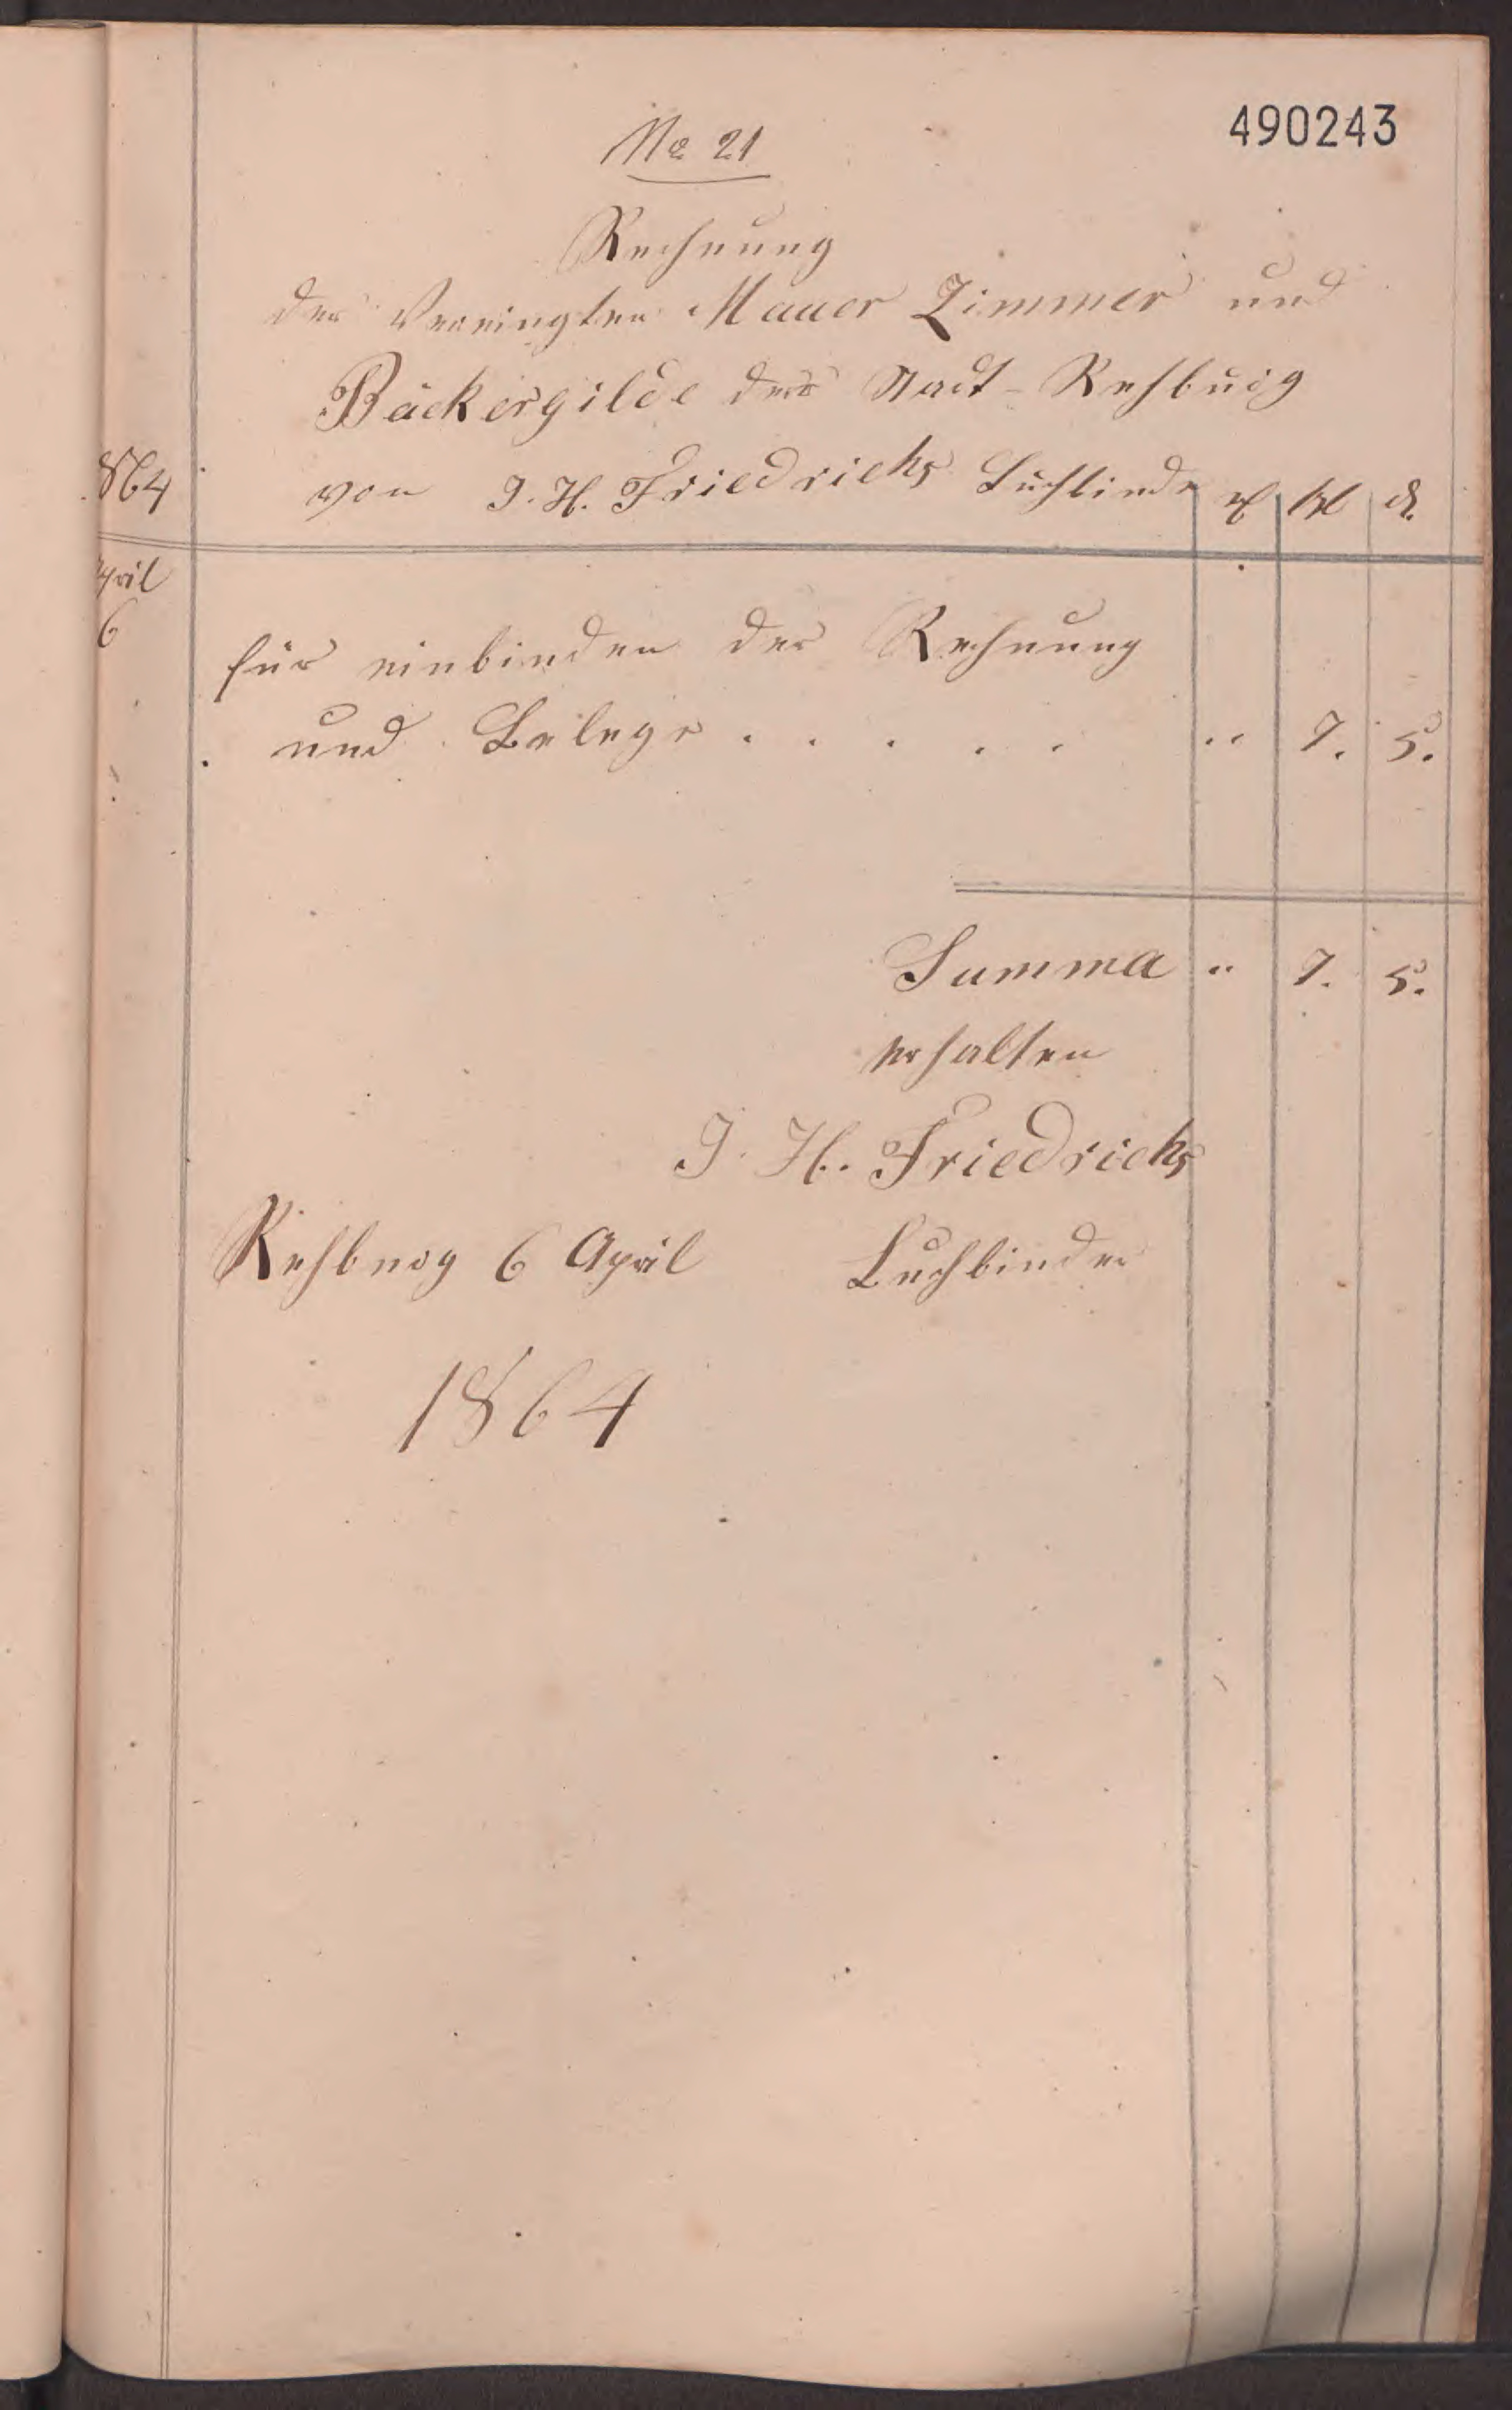 490243
No 21
Rechnung
der Vereingten Mauer Zimmer und
Bäckergilde der Stadt-Rehburg
1864 von J. H. Friedrichs Buchbinder
April
6
für einbinden der Rechnung
und Belege . . . . . " 7. 5.
Summa " 7. 5.
erhalten
J. H. Friedrichs
Rehburg 6 April Buchbinder
1864